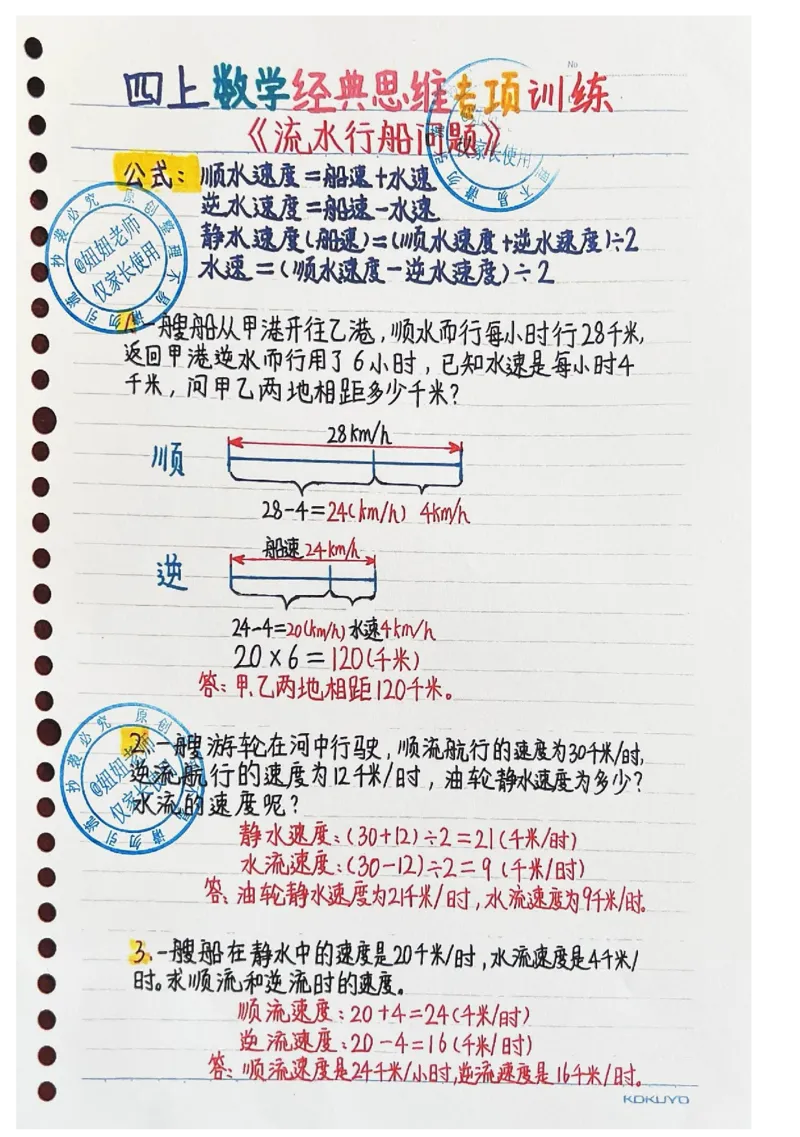 No
四上数学经典思维专项训练
《流水行船问题》
公式：顺水速度=船速+水速
逆水速度=船速-水速
静水速度(船速)=(顺水速度+逆水速度)÷2
水速=(顺水速度-逆水速度)÷2
原创整理不易 请勿引流 抄袭必究
@妞妞老师
仅家长使用
1.一艘船从甲港开往乙港，顺水而行每小时行28千米,
返回甲港逆水而行用了6小时，已知水速是每小时4
千米，问甲乙两地相距多少千米？
28km/h
顺
28-4=24(km/h) 4km/h
船速24km/h
逆
24-4=20(km/h) 水速4km/h
20×6=120(千米)
答:甲、乙两地相距120千米。
2.一艘游轮在河中行驶，顺流航行的速度为30千米/时,
逆流航行的速度为12千米/时，油轮静水速度为多少?
水流的速度呢？
静水速度:(30+12)÷2=21(千米/时)
水流速度:(30-12)÷2=9(千米/时)
答:油轮静水速度为21千米/时,水流速度为9千米/时。
3.一艘船在静水中的速度是20千米/时,水流速度是4千米/
时。求顺流和逆流时的速度。
顺流速度:20+4=24(千米/时)
逆流速度:20-4=16(千米/时)
答:顺流速度是24千米/小时,逆流速度是16千米/时。
KOKUYO